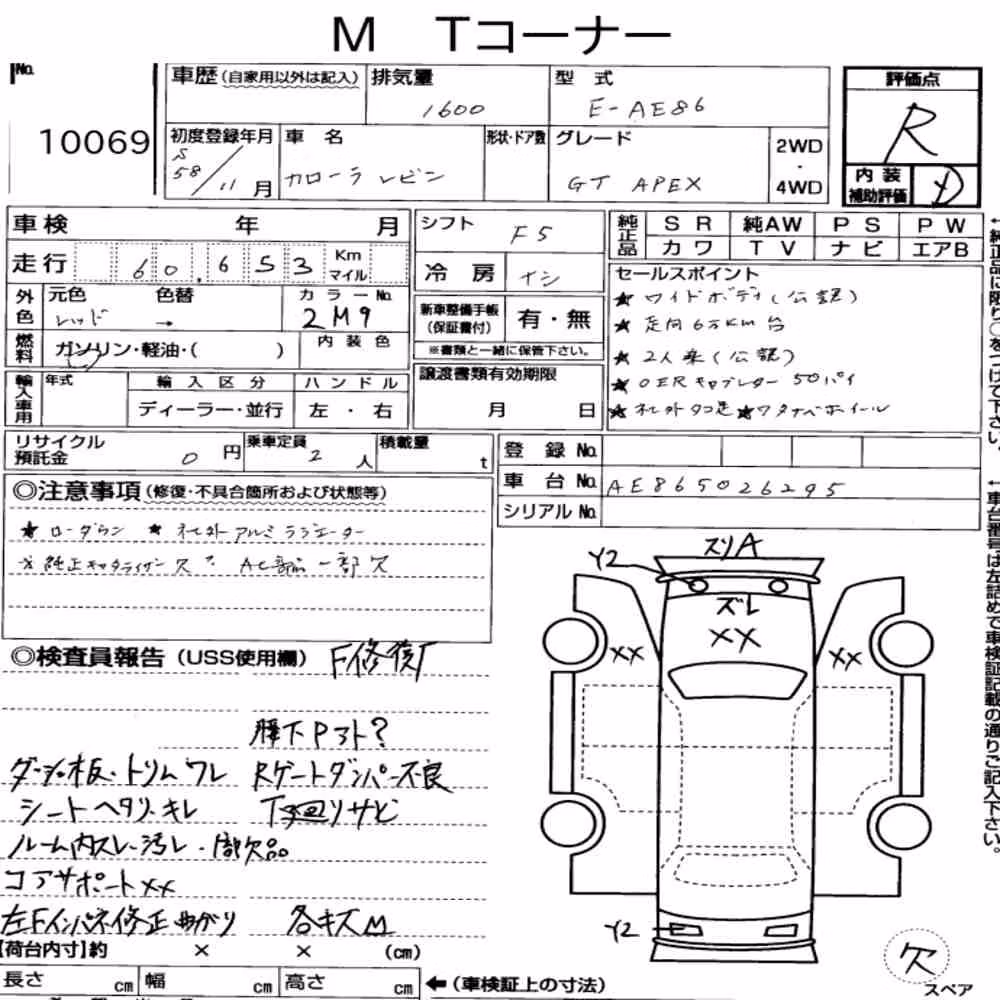 M Tコーナー
No.
10069
車歴(自家用以外は記入)
排気量
1600
型 式
E-AE86
評価点
R
初度登録年月
S58/11月
車 名
カローラレビン
形状・ドア数
グレード
GT APEX
2WD
・
4WD
内装
補助評価
D
車検 年 月
シフト
F5
純正品
SR 純AW PS PW
カワ TV ナビ エアB
走行 60,653 Km マイル
冷房
ナシ
セールスポイント
★ワイドボディ(公認)
★走向6万KM台
★2人乗(公認)
★OERキャブレター 50パイ
★社外タコ足★ワタナベホイール
外色
元色
レッド
色替
→
カラーNo.
2M9
新車整備手帳
(保証書付)
有・無
※書類と一緒に保管下さい。
燃料
ガソリン・軽油・( )
内装色
輸入車用
年式
輸入区分
ハンドル
ディーラー・並行
左・右
譲渡書類有効期限
月 日
リサイクル
預託金
0円
乗車定員
2人
積載量
t
登録No.
車台No.
AE865026295
シリアルNo.
◎注意事項(修復・不具合箇所および状態等)
★ローダウン ★社外アルミラジエーター
☆純正キャタライザー欠. AC部品一部欠
◎検査員報告(USS使用欄)
F修復有
腰下Pヌト?
ダッシュ板・トリムワレ Rゲートダンパー不良
シートヘタリ・キレ 下廻りサビ
ルーム内スレ・汚レ・1部欠品
コアサポートXX
左Fインパネ修正曲がり 各キズM
【荷台内寸】約 × × (cm)
長さ cm 幅 cm 高さ cm
←(車検証上の寸法)
Y2
スリA
ズレ
XX
XX
XX
Y2
欠
スペア
←純正品に限り○をつけて下さい。
←車台番号は左詰めで車検証記載の通りご記入下さい。